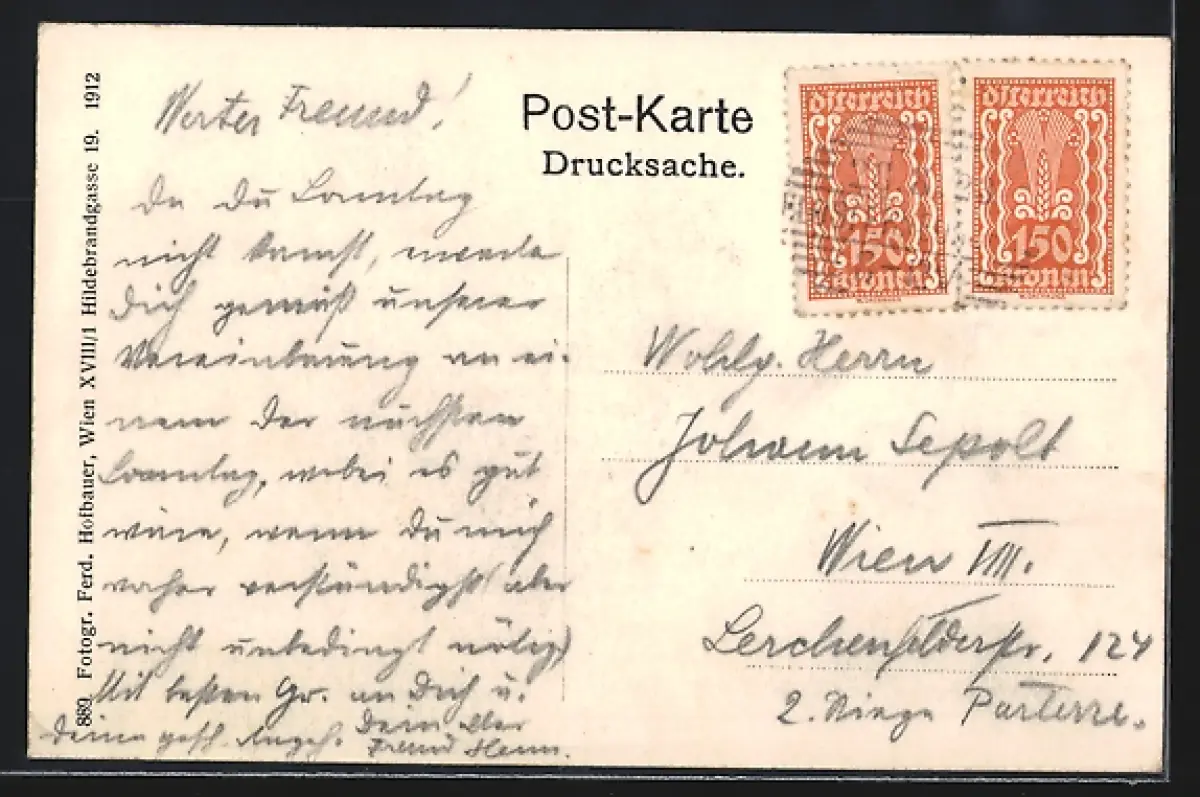 Post-Karte
Drucksache.
österreich
150
kronen
österreich
150
kronen
Werter Freund!
Da Du Sonntag
nicht kamst, werde
Dich gemäß unserer
Vereinbarung an ei-
nem der nächsten
Sonntag, wobei es gut
wäre, wenn Du mich
vorher verständigst (aber
nicht unbedingt nötig)
Mit besten Gr. an Dich u.
Deine gesch. Angeh. Dein alter
Freund
Wohlg. Herrn
Johann Sepolt
Wien VIII.
Lerchenfelderstr. 124
2. Stiege Parterre.
889 Fotogr. Ferd. Hofbauer, Wien XVIII/1 Hildebrandgasse 19. 1912